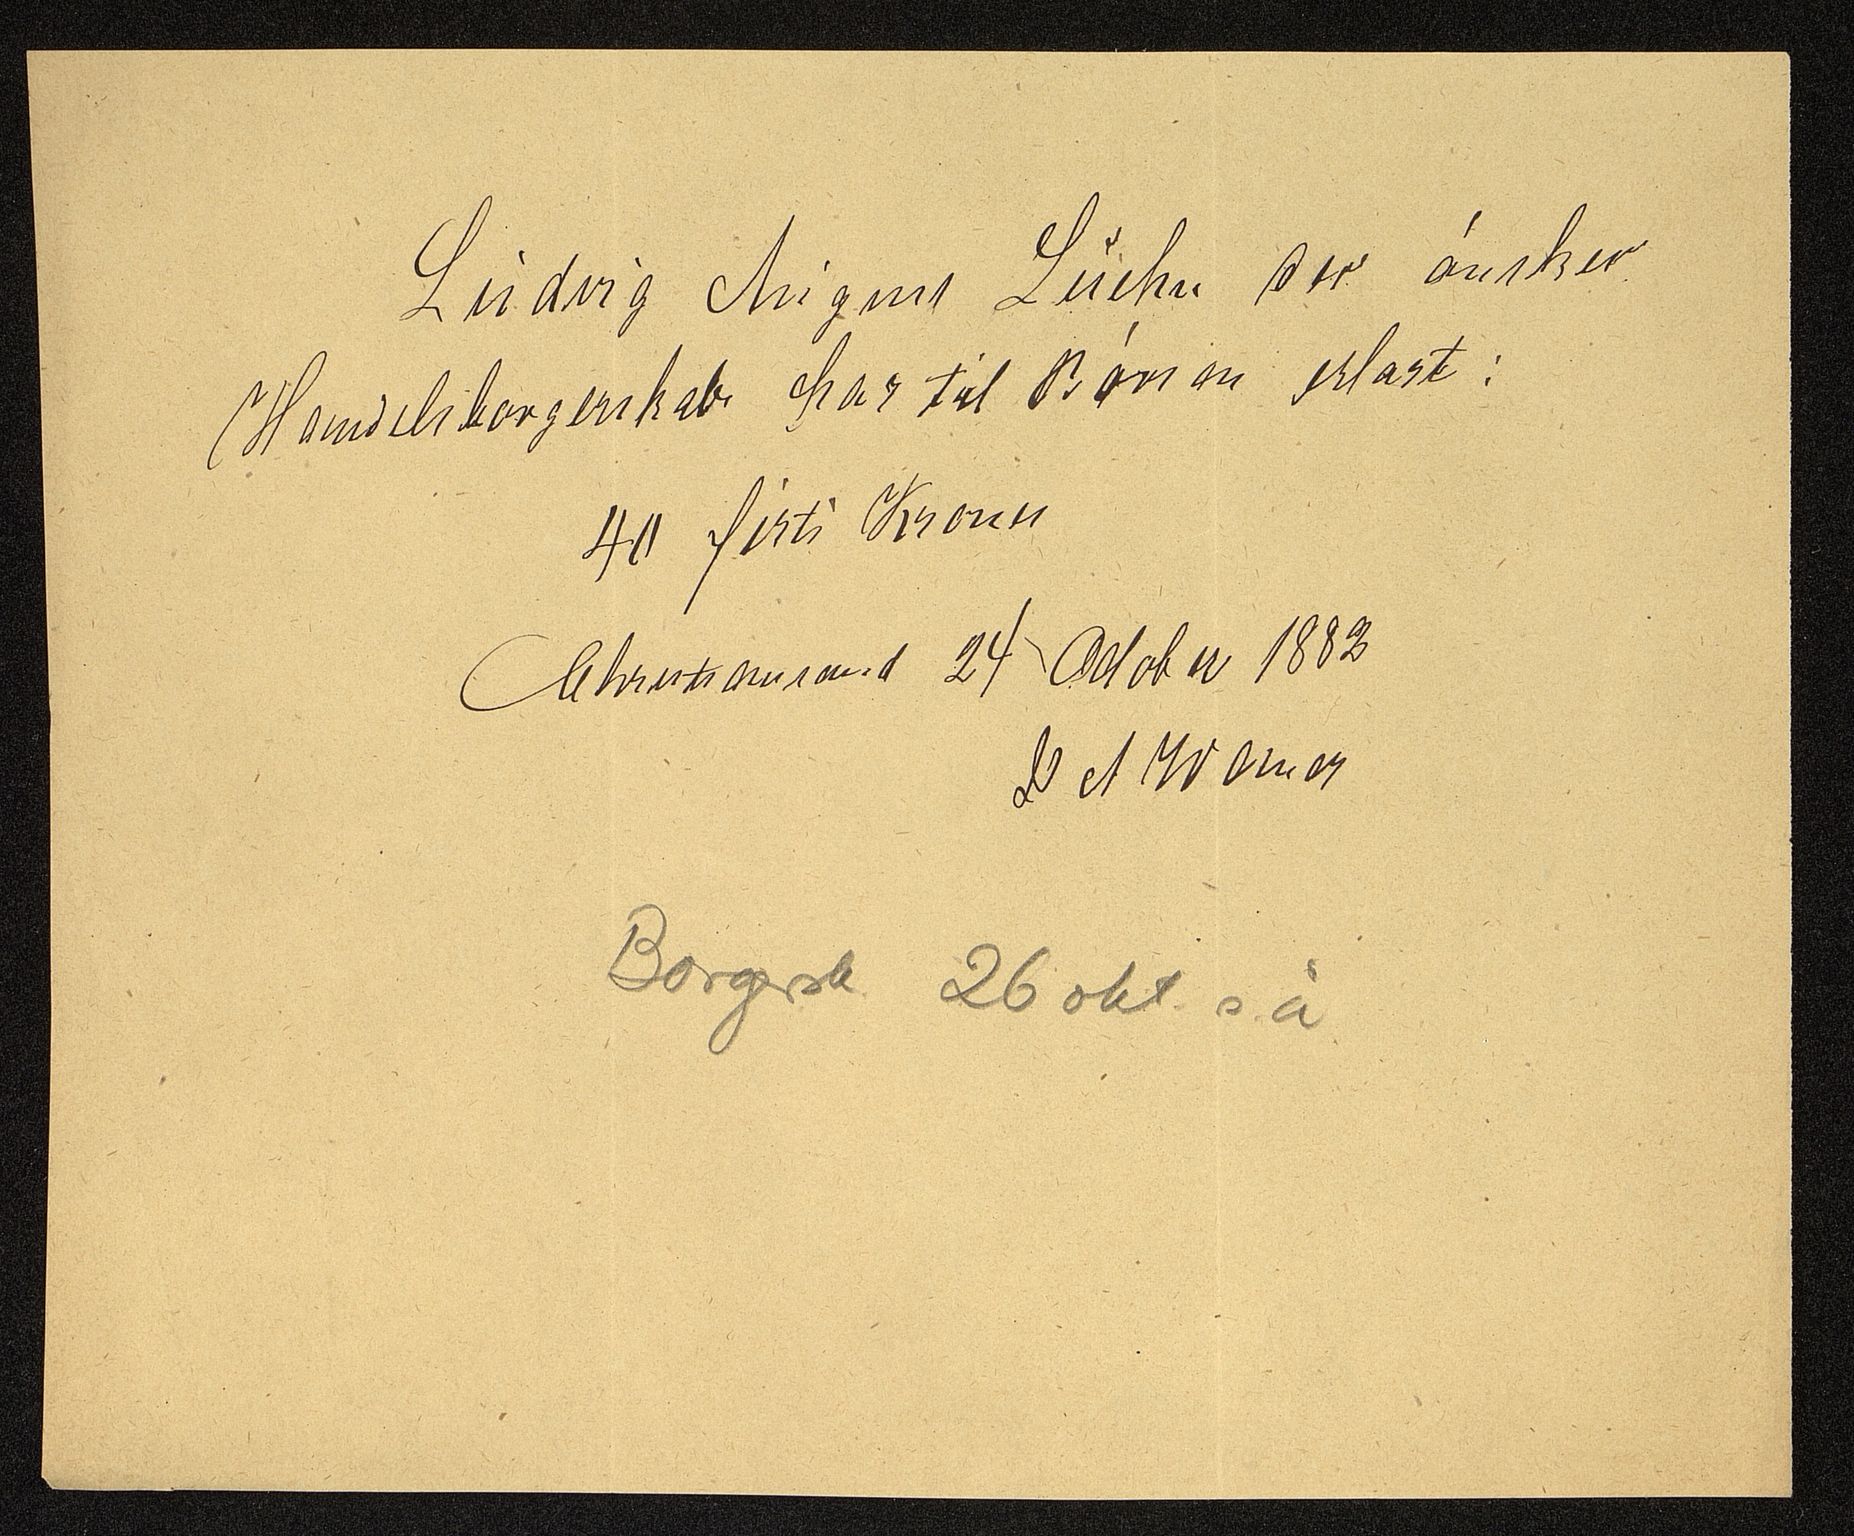 Ludvig August Lühn der ønsker
Handelsborgerskab har til Børsen erlagt:
40 firti Kroner
Christianssand 24 October 1882
Borgersk. 26 okt. s.å